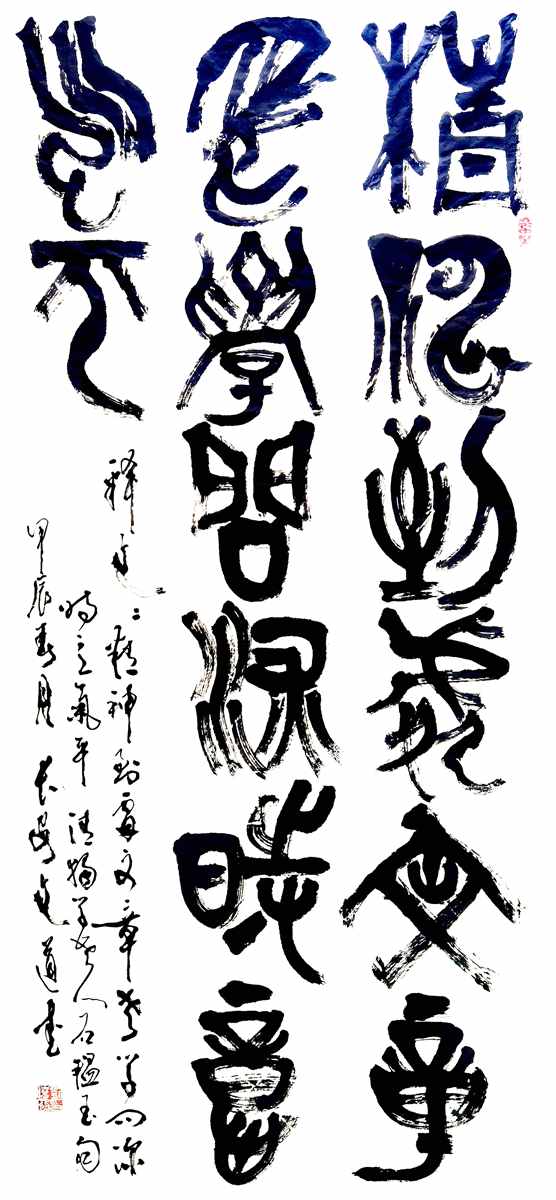 精神到處文章
老學問深時意
氣平
釋文：精神到處文章老學問深
時意氣平 清獨學老人石韞玉句
甲辰春月 道書